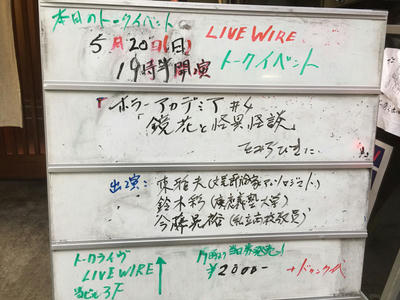 本日のトークイベント
5月20日(日)
19時半開演
LIVE WIRE
トークイベント
ホラーアカデミア#4
「鏡花と怪異怪談
をみちびきに
出演:東雅夫(文芸評論家アンソロジスト)
鈴木彩(慶應義塾大学)
今藤晃裕(私立高校教員)
トークライヴ
LIVE WIRE
当ビル3F
当日券発売!
¥2000-
+ドリンク代